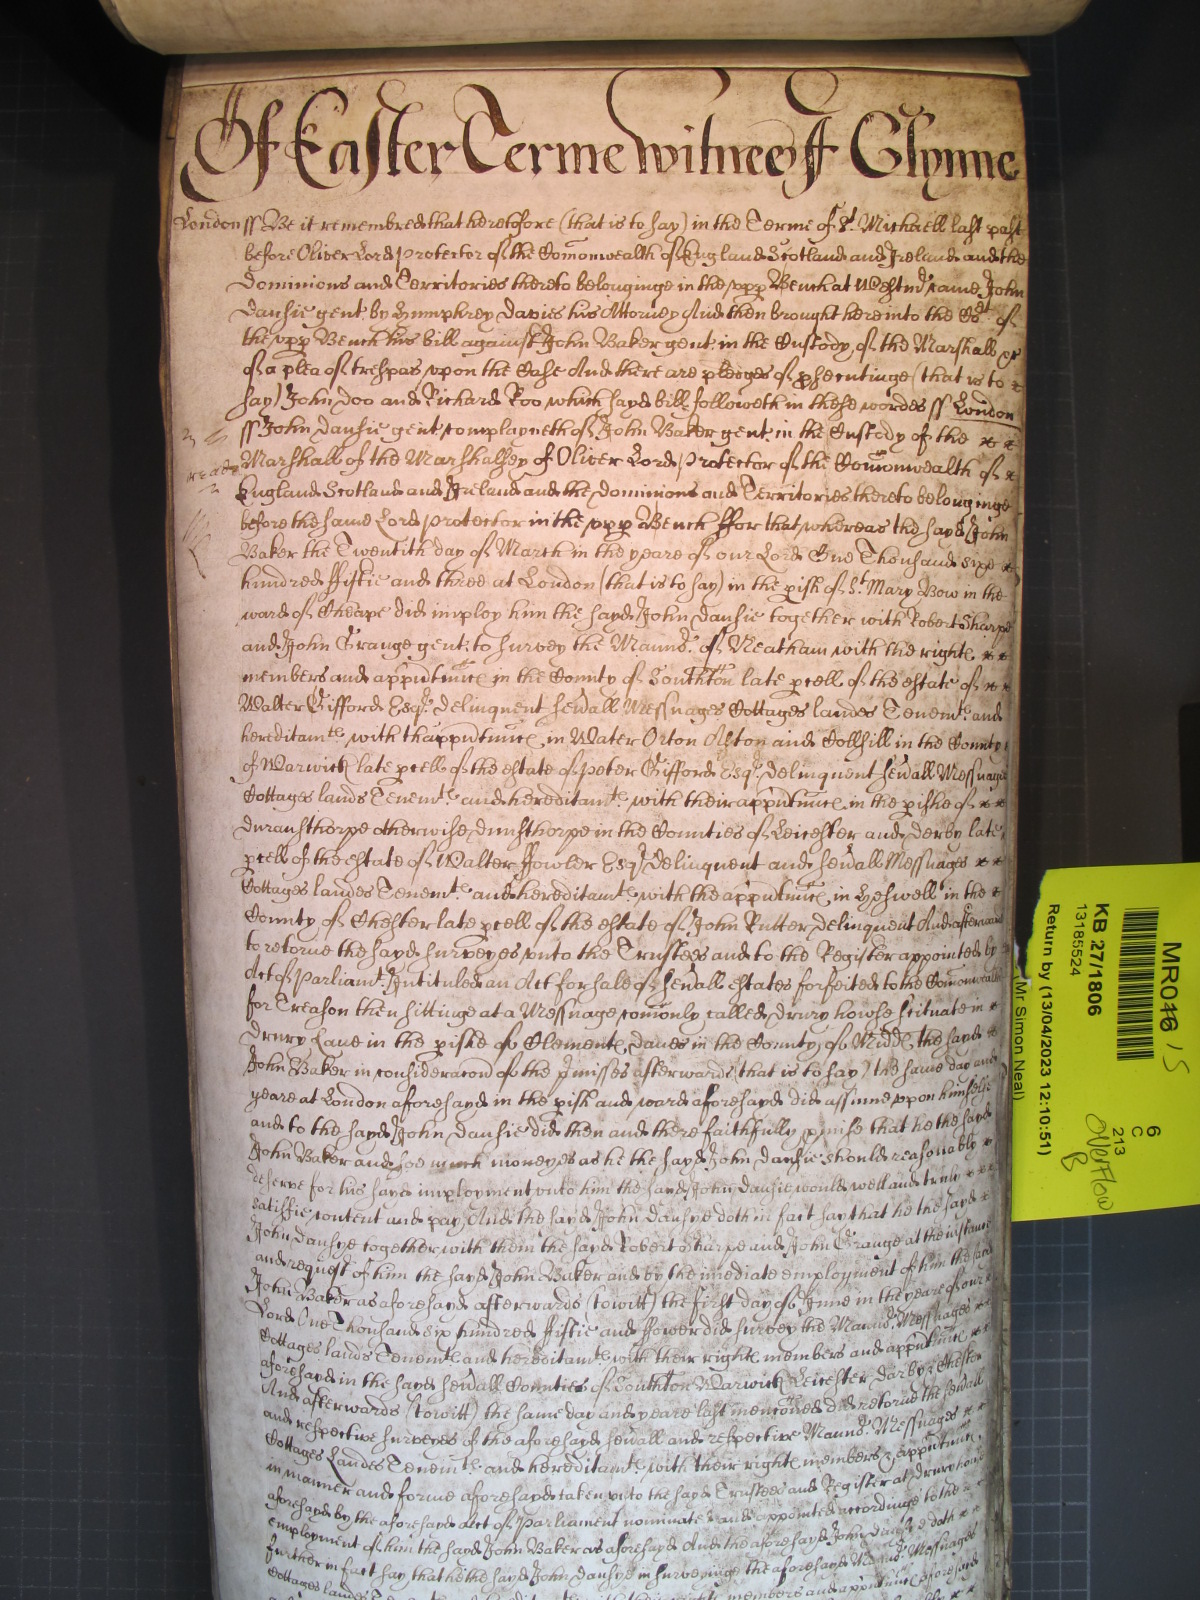 Of Easter Terme witnes ff Glynne
London ss Be it remembred that heretofore (that is to say) in the Terme of St. Michaell last past
before Oliver Lord Protector of the Comonwealth of England Scotland and Ireland and the
Dominions and Territories thereto belonginge in the upp Bench at Westmr came John
Dansie gent by Humphrey Davies his Attorney And then brought here into the Cort of
the upp Bench his bill against John Baker gent in the Custody of the Marshall &c
of a plea of trespas upon the Case And there are pledges of psecutinge (that is to
say) John Doo and Richard Roo which sayd bill followeth in these wordes ss London
ss John Dansie gent complayneth of John Baker gent in the Custody of the
Marshall of the Marshalsey of Oliver Lord Protector of the Comonwealth of
England Scotland and Ireland and the Dominions and Territories thereto belonginge
before the same Lord Protector in the upp Bench ffor that whereas the sayd John
Baker the Twentith day of March in the yeare of our Lord One Thousand sixe
hundred ffiftie and three at London (that is to say) in the pish of St. Mary Bow in the
ward of Cheape did imploy him the sayd John Dansie together with Robert Sharpe
and John Grange gent to survey the Mannor of Neatham with the rights
members and apptences in the County of Southton late pcell of the estate of
Walter Gifford Esqr. delinquent sevall Messuages Cottages landes Tenemts and
hereditamts with thapptences in Water Orton Aston and Collsill in the County
of Warwick late pcell of the estate of Peter Gifford Esqr. delinquent sevall Messuages
Cottages lands Tenemts and hereditamts with their apptences in the pishe of
Duransthorpe otherwise Dunsthorpe in the Counties of Leicester and Derby late
pcell of the estate of Walter ffowler Esqr delinquent and sevall Messuages
Cottages landes Tenemts and hereditamts with the apptences in in the
County of Chester late pcell of the estate of John Rutter delinquent And afterwards
to retorne the sayd surveyes unto the Trustees and to the Register appointed by
Act of Parliamt. Intituled an Act for sale of sevall estates forfeited to the Comonwealth
for Treason then sittinge at a Messuage comonly called Drury howse scituate in
Drury Lane in the pishe of Clements Danes in the County of Midd the sayd
John Baker in consideracon of the pmisses afterwards (that is to say) the same day and
yeare at London aforesayd in the pish and ward aforesayd did assume upon himselfe
and to the sayd John Dansie did then and there faithfully pmise that he the sayd
John Baker and soe much moneyes as he the sayd John Dansie should reasonably
deserve for his sayd imployment unto him the sayd John Dansie would well and truly
satisfie content and pay And the sayd John Dansye doth in fact say that he the sayd
John Dansye together with them the sayd Robert Sharpe and John Grange at the instance
and request of him the sayd John Baker and by the imediate employment of him the said
John Baker as aforesayd afterwards (towitt) the first day of June in the yeare of our
Lord One Thousand six hundred ffiftie and ffower did survey the Mannor Messuages
Cottages lands Tenemts and hereditamts with their rights members and apptences
aforesayd in the sayd sevall Counties of Southton Warwick Leicester Darby & Chester
And afterwards (towitt) the same day and yeare last menconed did retorne the sevall
and respective surveyes of the aforesayd sevall and respective Mannor Messuages
Cottages Landes Tenemts and hereditamts with their rights members & apptences
in manner and forme aforesayd taken unto the sayd Trustees and Register at Drury house
aforesayd by the aforesayd Act of Parliament nominated and appointed accordinge to the
employment of him the sayd John Baker as aforesayd And the aforesayd John Dansye doth
further in fact say that he the sayd John Dansye in surveyinge the aforesayd Mannor Messuages
Cottages lands members and apptences aforesayd
MR046 / 5
6
C
213
Overflow
B
KB 27/1806
13185524
Return by (13/04/2023 12:10:51)
(Mr Simon Neal)